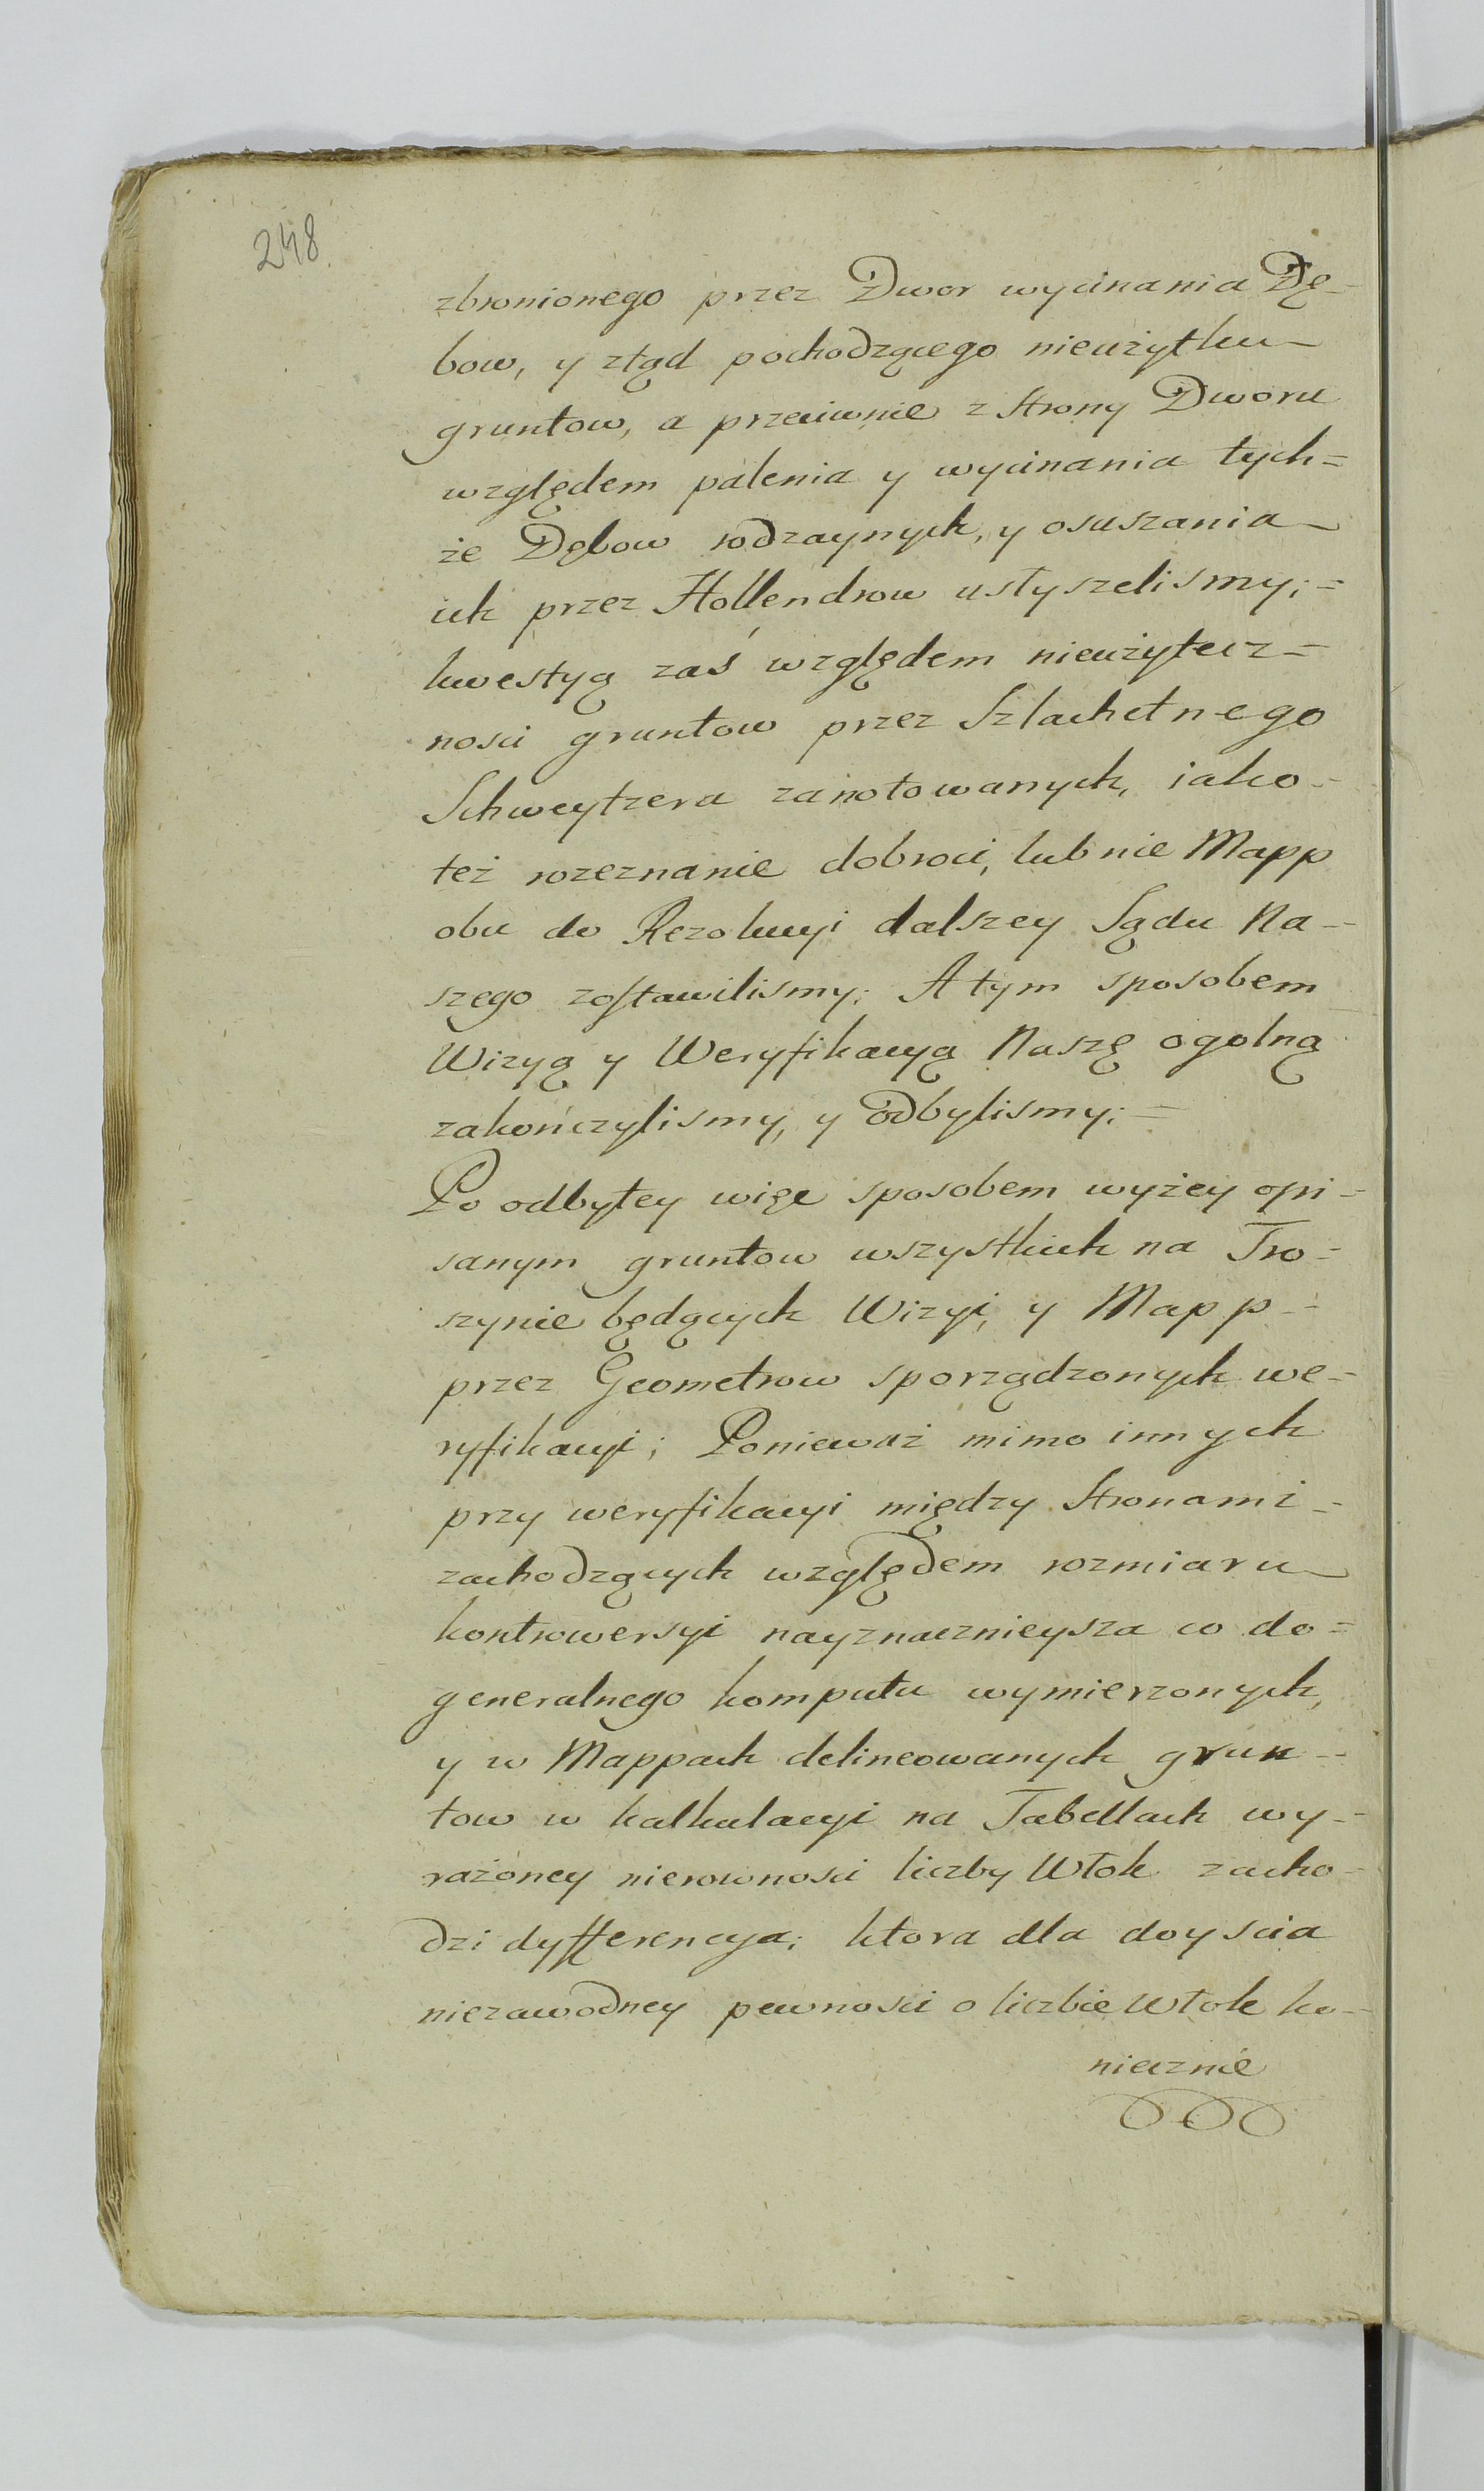 248.
zbronionego przez Dwor wycinania Dę-
bow, y ztąd pochodzącego nieużytku
gruntow, a przeciwnie z strony Dworu
względem palenia y wycinania tych=
że Dębow rodzaynych, y osuszania
ich przez Hollendrow usłyszelismy;=
kwestyą zaś względem nieużytecz=
nosci gruntow przez Szlachetnego
Schweytzera zanotowanych, iako-
też rozeznanie dobroci, lub nie Mapp
obu do Rezolucyi dalszey Sądu Na-
szego zostawilismy; A tym sposobem
Wizyą y Weryfikacyą Naszę ogolną
zakończylismy, y odbylismy;=
Po odbytey więc sposobem wyżey opi=
sanym gruntow wszystkich na Tro=
szynie będących Wizyi, y Mapp-
przez Geometrow sporządzonych we=
ryfikacyi; Ponieważ mimo innych
przy weryfikacyi między Stronami-
zachodzących względem rozmiaru
kontrowersyi nayznacznieysza co do=
generalnego komputu wymierzonych,
y w Mappach delineowanych grun-
tow w kalkulacyi na Tabellach wy-
rażoney nierownosci liczby Włok zacho-
dzi dyfferencya; ktora dla doyscia
niezawodney pewnosci o liczbie Włok ko-
niecznie